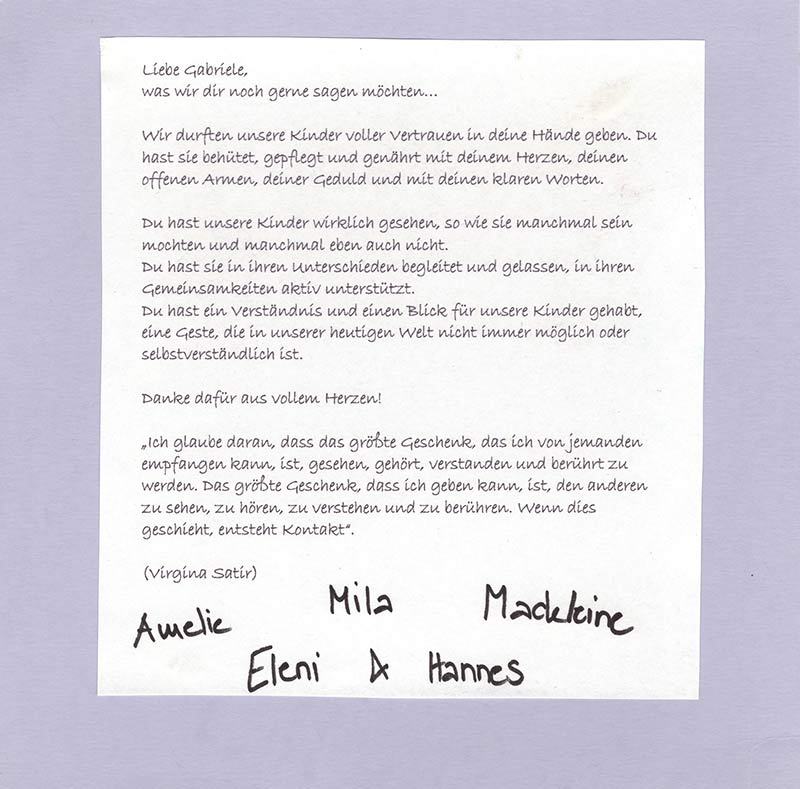 Liebe Gabriele,
was wir dir noch gerne sagen möchten...
Wir durften unsere Kinder voller Vertrauen in deine Hände geben. Du
hast sie behütet, gepflegt und genährt mit deinem Herzen, deinen
offenen Armen, deiner Geduld und mit deinen klaren Worten.
Du hast unsere Kinder wirklich gesehen, so wie sie manchmal sein
mochten und manchmal eben auch nicht.
Du hast sie in ihren Unterschieden begleitet und gelassen, in ihren
Gemeinsamkeiten aktiv unterstützt.
Du hast ein Verständnis und einen Blick für unsere Kinder gehabt,
eine Geste, die in unserer heutigen Welt nicht immer möglich oder
selbstverständlich ist.
Danke dafür aus vollem Herzen!
„Ich glaube daran, dass das größte Geschenk, das ich von jemanden
empfangen kann, ist, gesehen, gehört, verstanden und berührt zu
werden. Das größte Geschenk, dass ich geben kann, ist, den anderen
zu sehen, zu hören, zu verstehen und zu berühren. Wenn dies
geschieht, entsteht Kontakt“.
(Virgina Satir)
Amelie Mila Madeleine
Eleni & Hannes